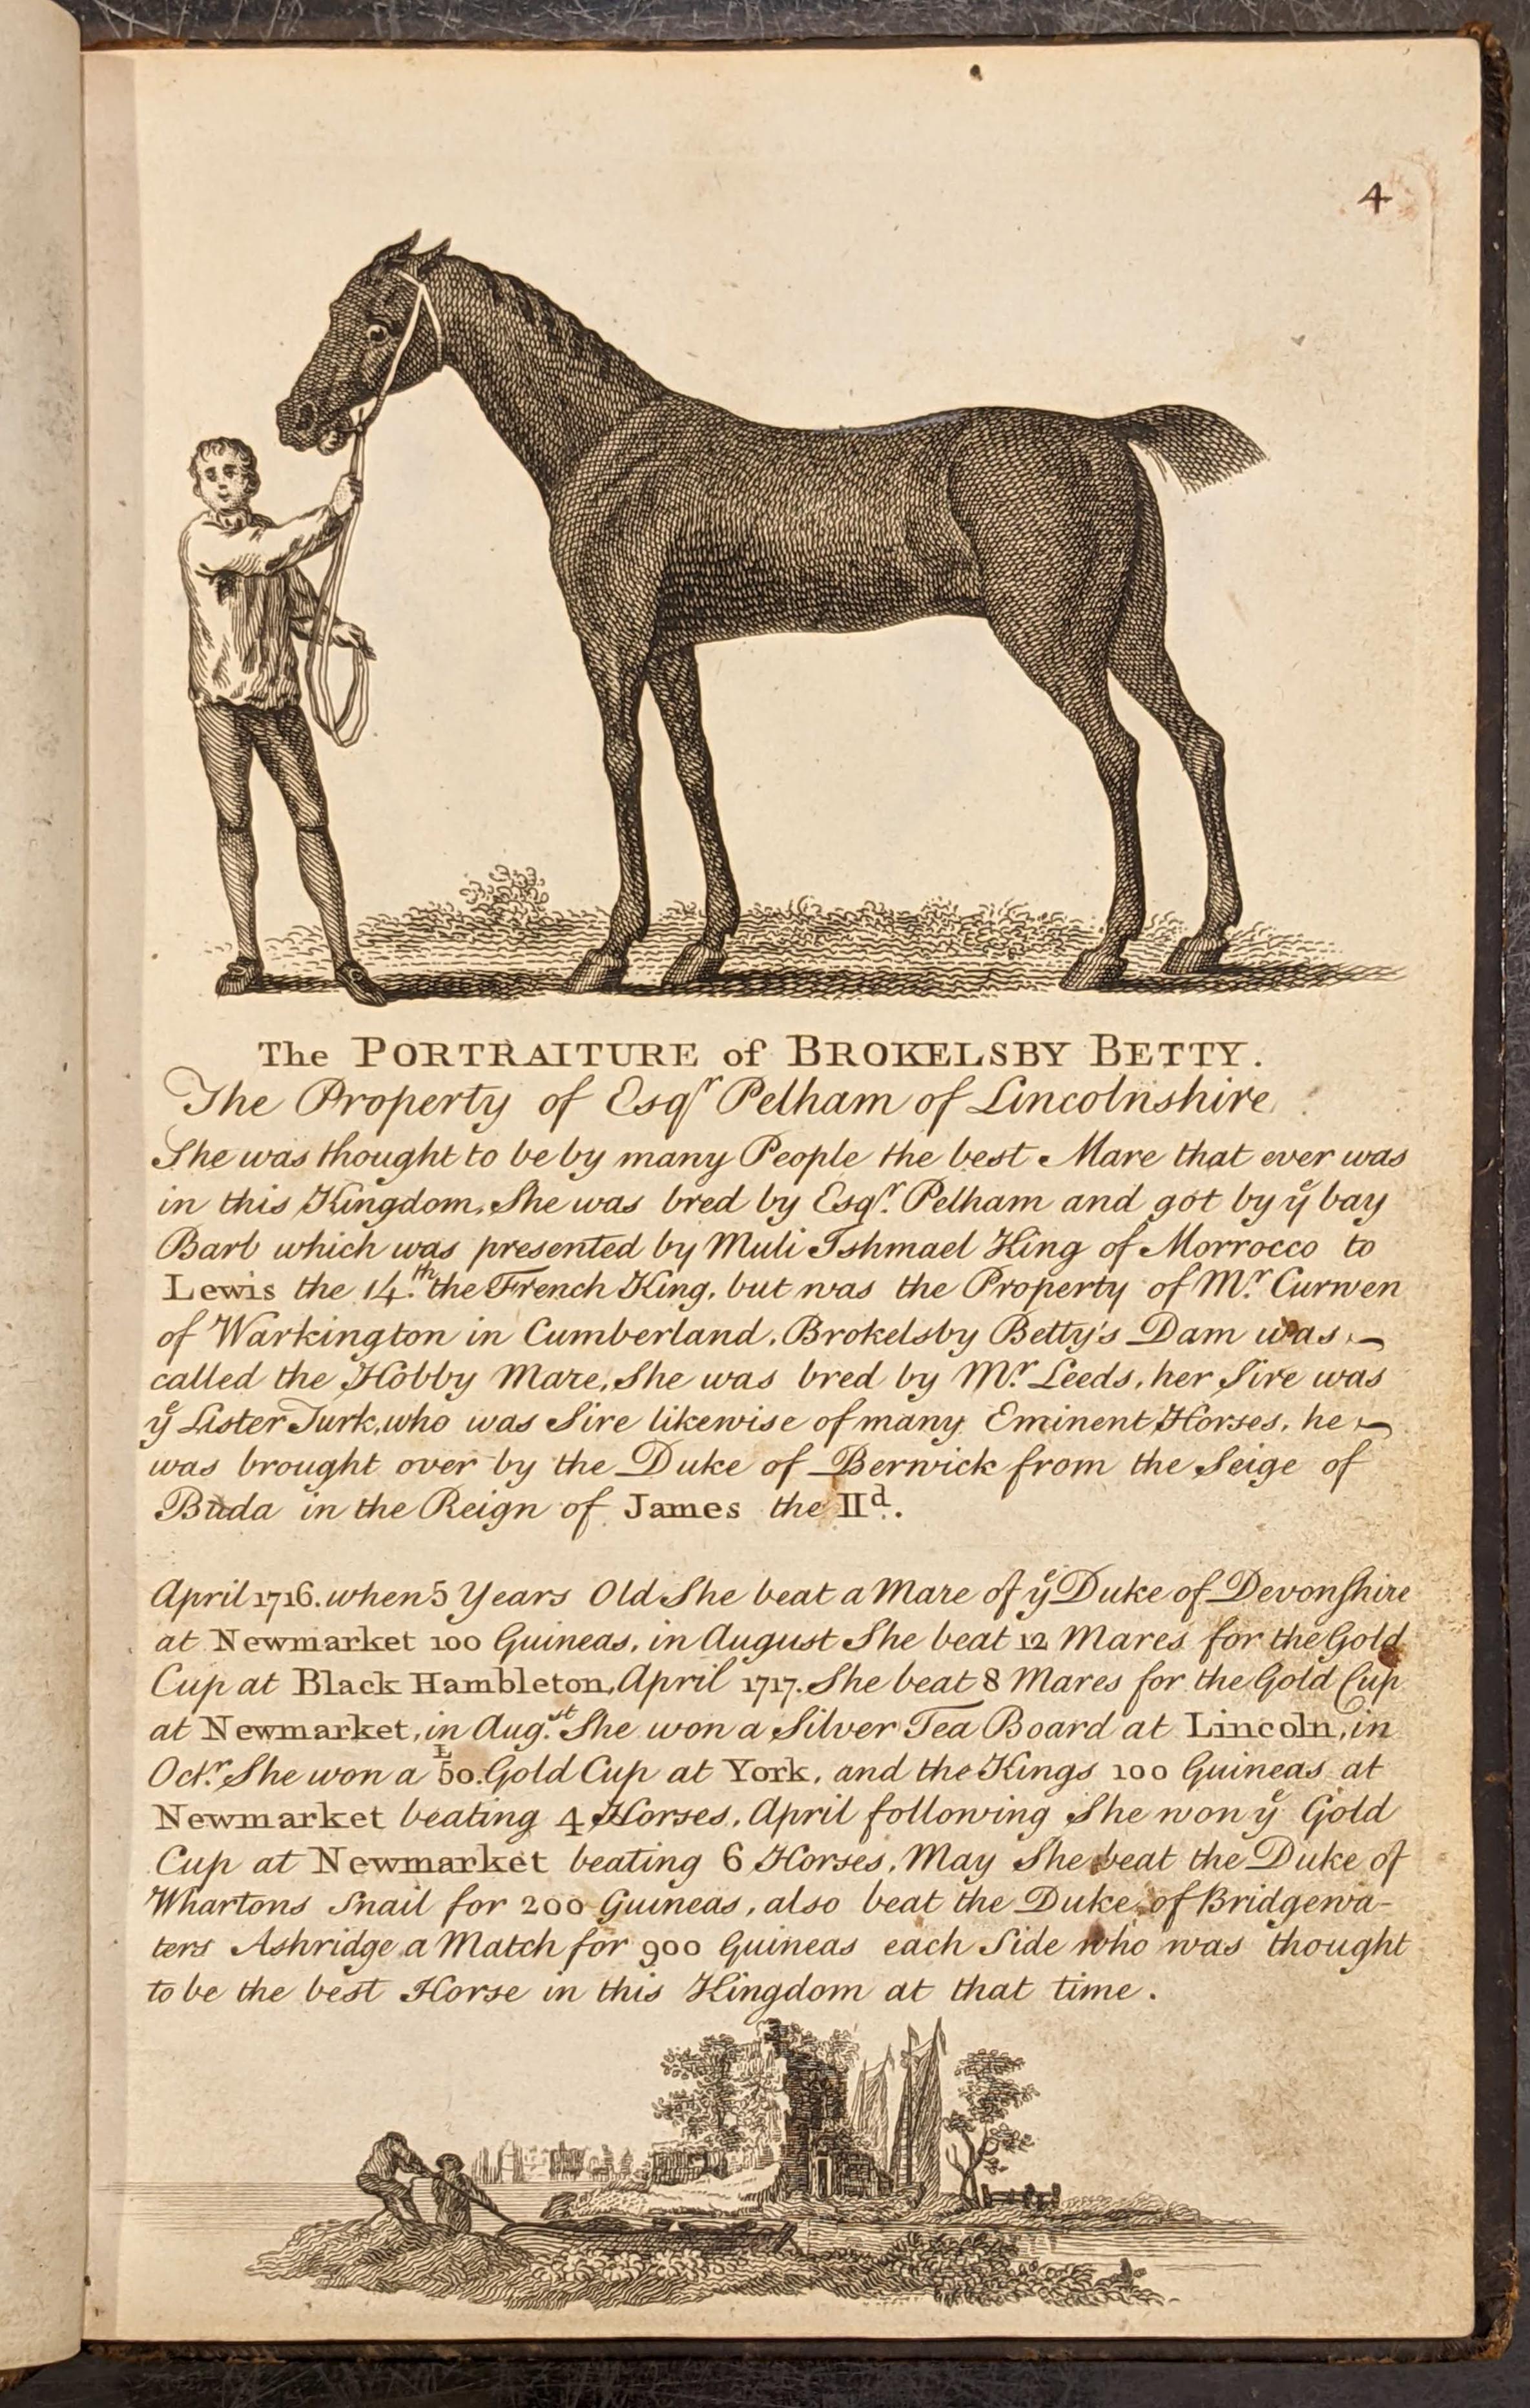 4
The PORTRAITURE of BROKELSBY BETTY.
The Property of Esqr Pelham of Lincolnshire
She was thought to be by many People the best Mare that ever was
in this Kingdom, She was bred by Esqr. Pelham and got by ye bay
Barb which was presented by Muli Ishmael King of Morrocco to
Lewis the 14.th the French King, but was the Property of Mr. Curwen
of Warkington in Cumberland, Brokelsby Betty's Dam was
called the Hobby Mare, She was bred by Mr. Leeds, her Sire was
ye Lister Turk, who was Sire likewise of many Eminent Horses, he
was brought over by the Duke of Berwick from the Seige of
Buda in the Reign of James the IId.
April 1716. when 5 Years Old She beat a Mare of ye Duke of Devonshire
at Newmarket 100 Guineas, in August She beat 12 Mares for the Gold
Cup at Black Hambleton, April 1717. She beat 8 Mares for the Gold Cup
at Newmarket, in Aug.st She won a Silver Tea Board at Lincoln, in
Octr. She won a 50.L Gold Cup at York, and the Kings 100 Guineas at
Newmarket beating 4 Horses, April following She won ye Gold
Cup at Newmarket beating 6 Horses, May She beat the Duke of
Whartons Snail for 200 Guineas, also beat the Duke of Bridgewa-
ters Ashridge a Match for 900 Guineas each Side who was thought
to be the best Horse in this Kingdom at that time.